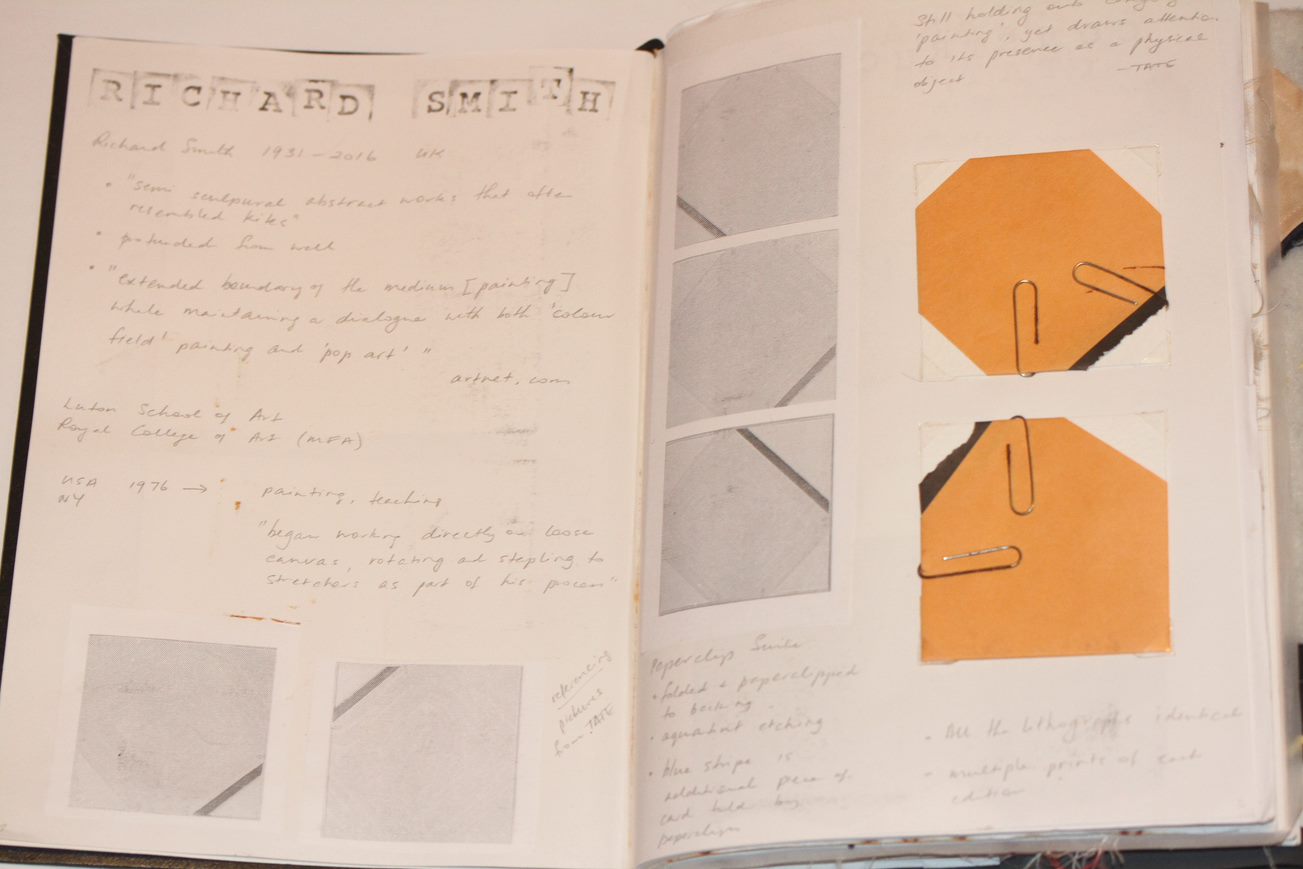 RICHARD SMITH
Richard Smith 1931-2016 UK
• "semi sculpural abstract works that often
resembled kites"
• potunded from wall
• "extended boundary of the medium [painting]
while maintaining a dialogue with both 'colour
field' painting and 'pop art' "
artnet.com
Luton School of Art
Royal College of Art (MFA)
USA 1976 → painting, teaching
NY
"began working directly on loose
canvas, rotating and stapling to
stretchers as part of his process"
referencing
pictures
from TATE
Paperclip Suite
• folded & paperclipped
to backing
• aquatint etching
• blue stripe is
additional piece of
card held by
paperclips
Still holding onto
'painting', yet draws attention
to its presence as a physical
object -TATE
• All the lithographs identical
• multiple prints of each
edition